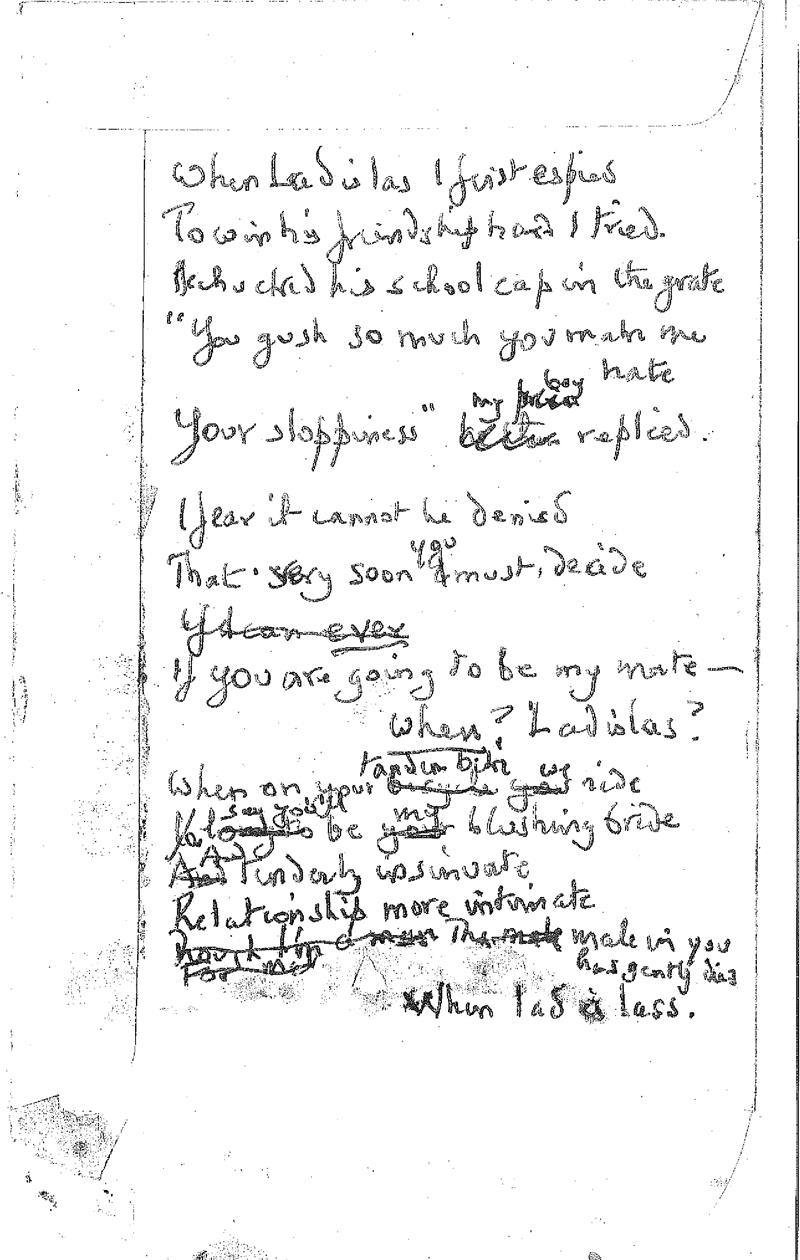 When Ladislas I first espied
To win his friendship hard I tried.
He chucked his school cap in the grate
"You gush so much you make me
hate
my boy
Your sloppiness" replied.
I fear it cannot be denied
That very soon you must decide
If you are going to be my mate —
When? Ladislas?
tandem bike we
When on your bicycle you ride
say you'll my
long to be your blushing bride
And
And tenderly insinuate
Relationship more intimate
Though I'm a man The male male in you
For has gently died
When lad is lass.